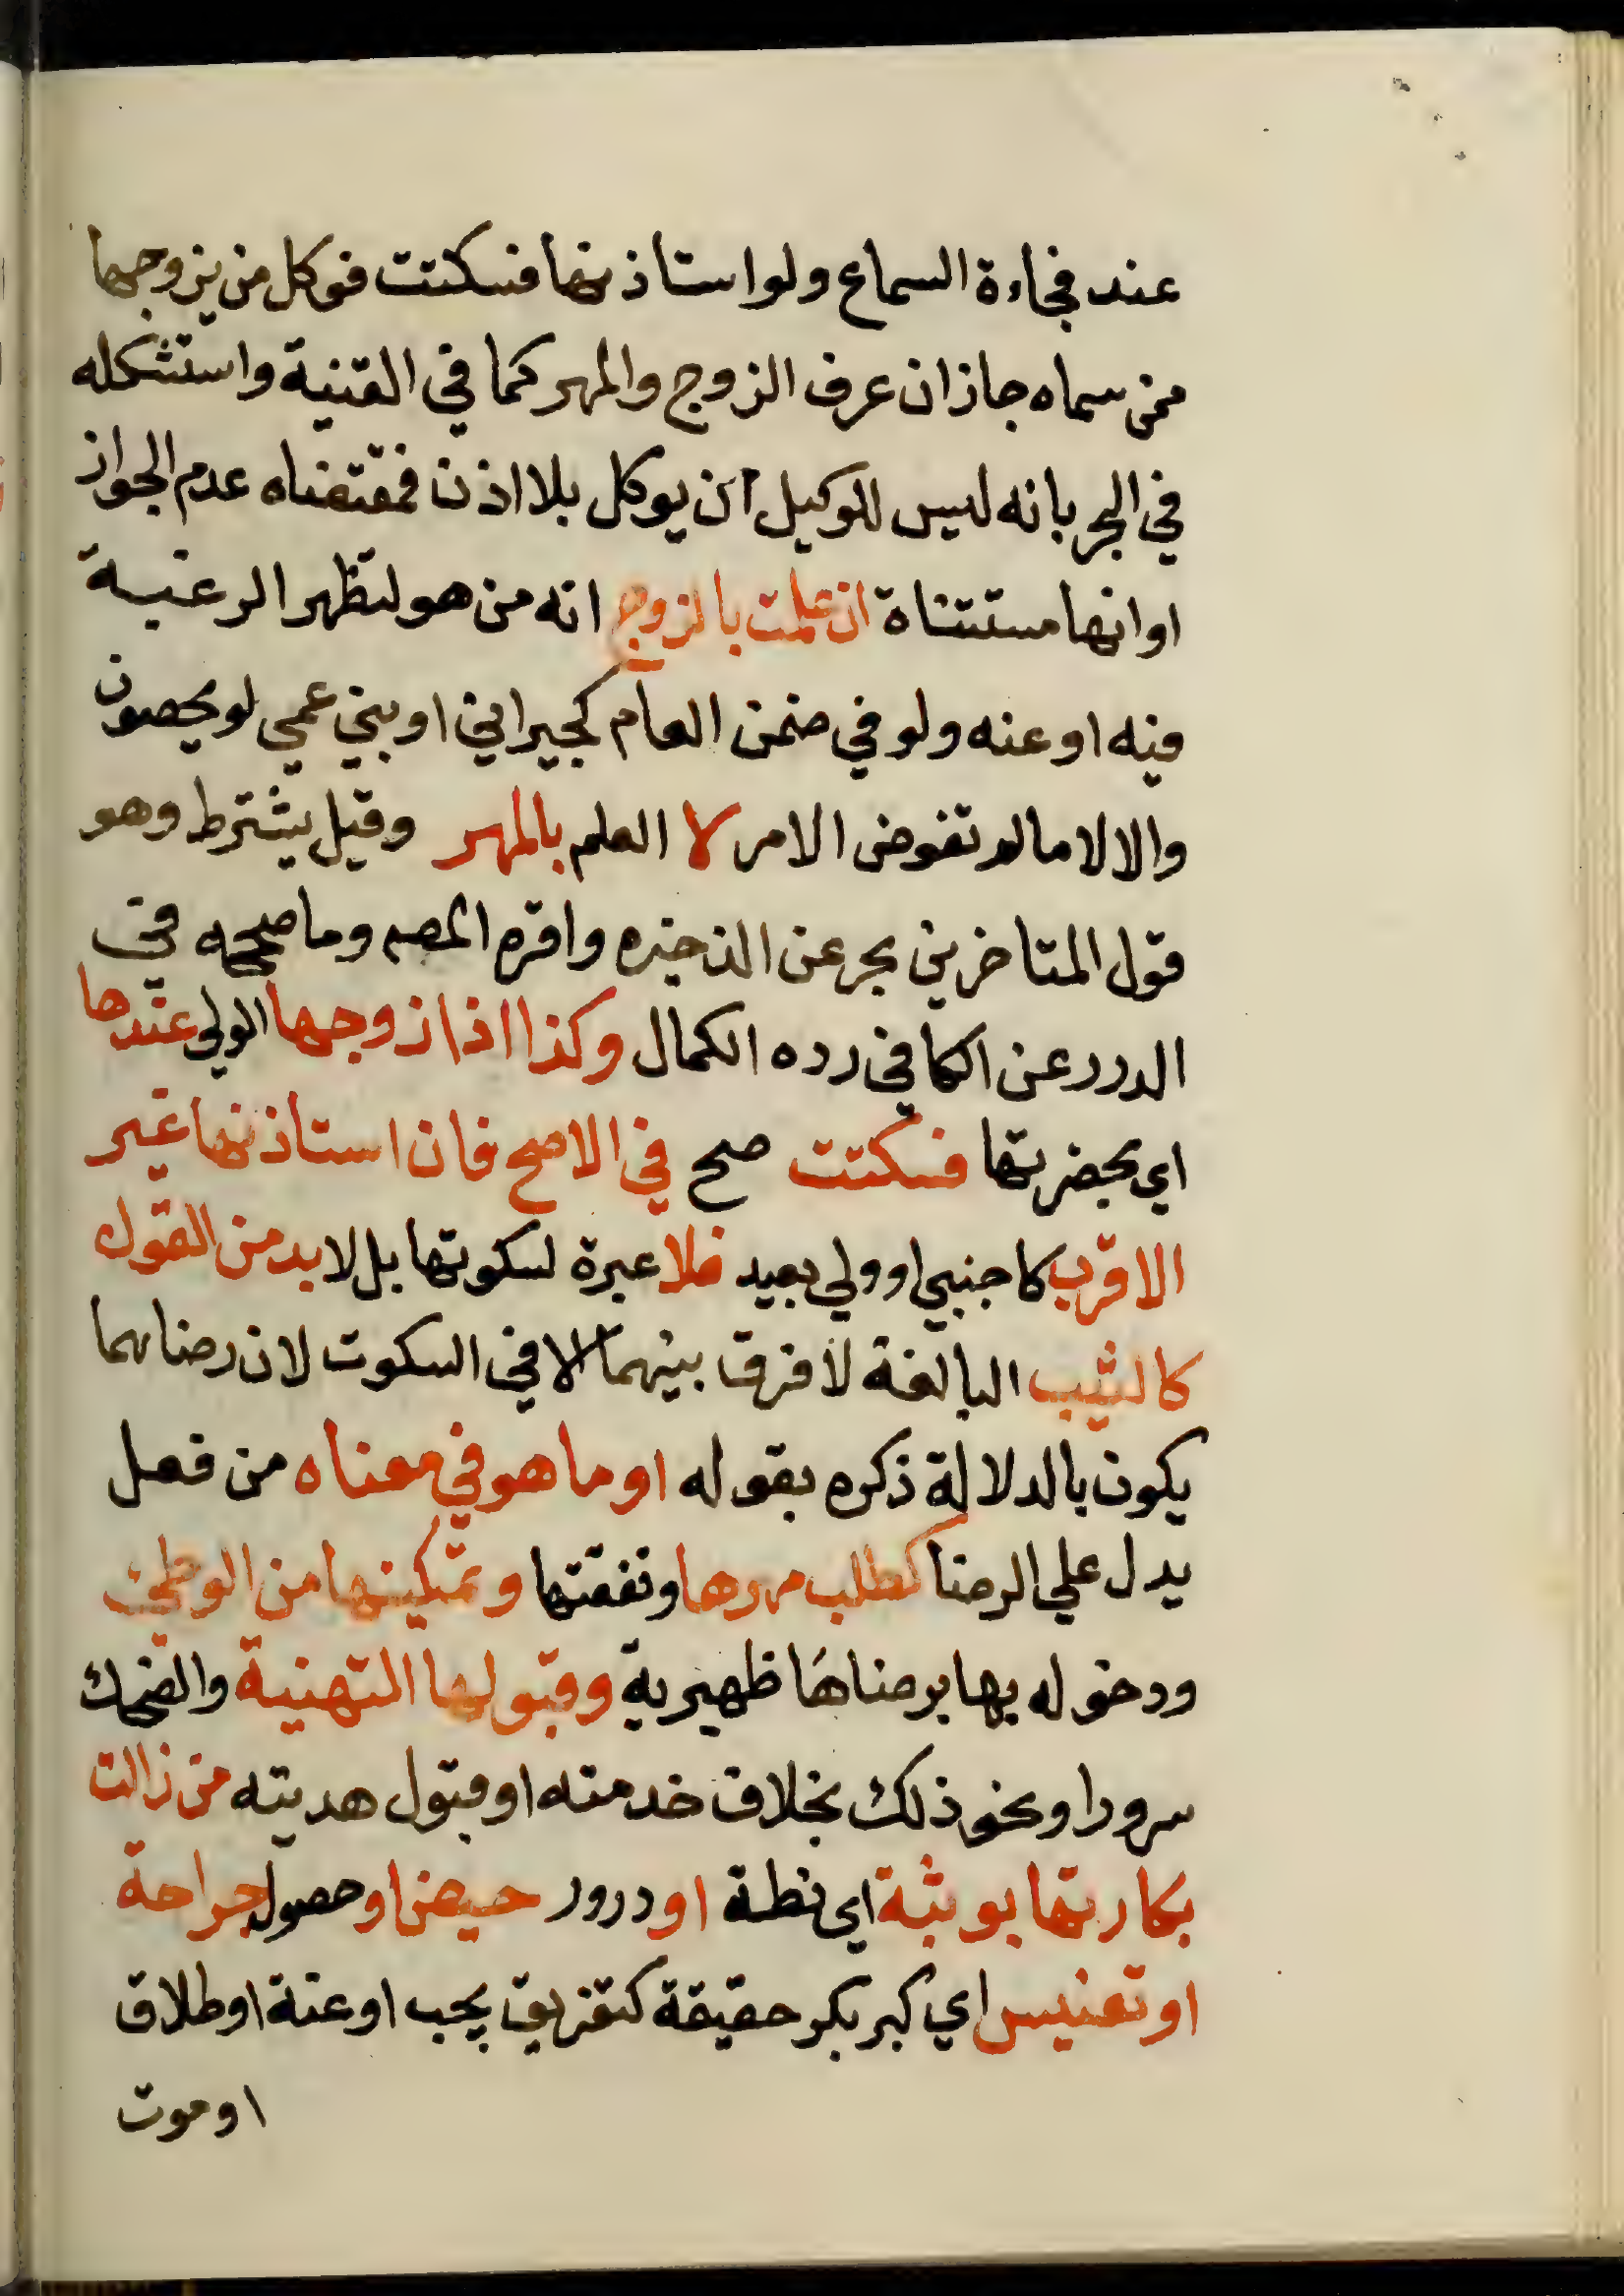 عند فجاءة السماع ولو استاذنها فسكتت فوكل من يزوجها
ممن سماه جاز ان عرف الزوج والمهر كما في القنية واستشكله
في البحر بانه ليس للوكيل ان يوكل بلا اذن فمقتضاه عدم الجواز
او انها مستثناة ان علمت بالزوج انه من هو لتظهر الرغبة
فيه او عنه ولو في ضمن العام كجيراني او بني عمي لو يحصون
والا لا ما لم تفوض الامر لا العلم بالمهر وقيل يشترط وهو
قول المتاخرين بحر عن الذخيره واقره المصـ وما صححه في
الدرر عن الكافي رده الكمال وكذا اذا زوجها الولي عندها
اي بحضرتها فسكتت صح في الاصح فان استاذنها غير
الاقرب كاجنبي او ولي بعيد فلا عبرة لسكوتها بل لا بد من القول
كالثيب البالغة لا فرق بينهما الا في السكوت لان رضاهما
يكون بالدلالة ذكره بقوله او ما هو في معناه من فعل
يدل علي الرضا كطلب مهرها ونفقتها وتمكينها من الوطئ
ودخوله بها برضاها ظهيرية وقبولها التهنية والضحك
سرورا ونحو ذلك بخلاف خدمته او قبول هديته من زالت
بكارتها بوثبة اي نطة او درور حيض او حصول جراحة
او تعنيس اي كبر بكر حقيقة كتفريق بجب او عنة او طلاق
او موت